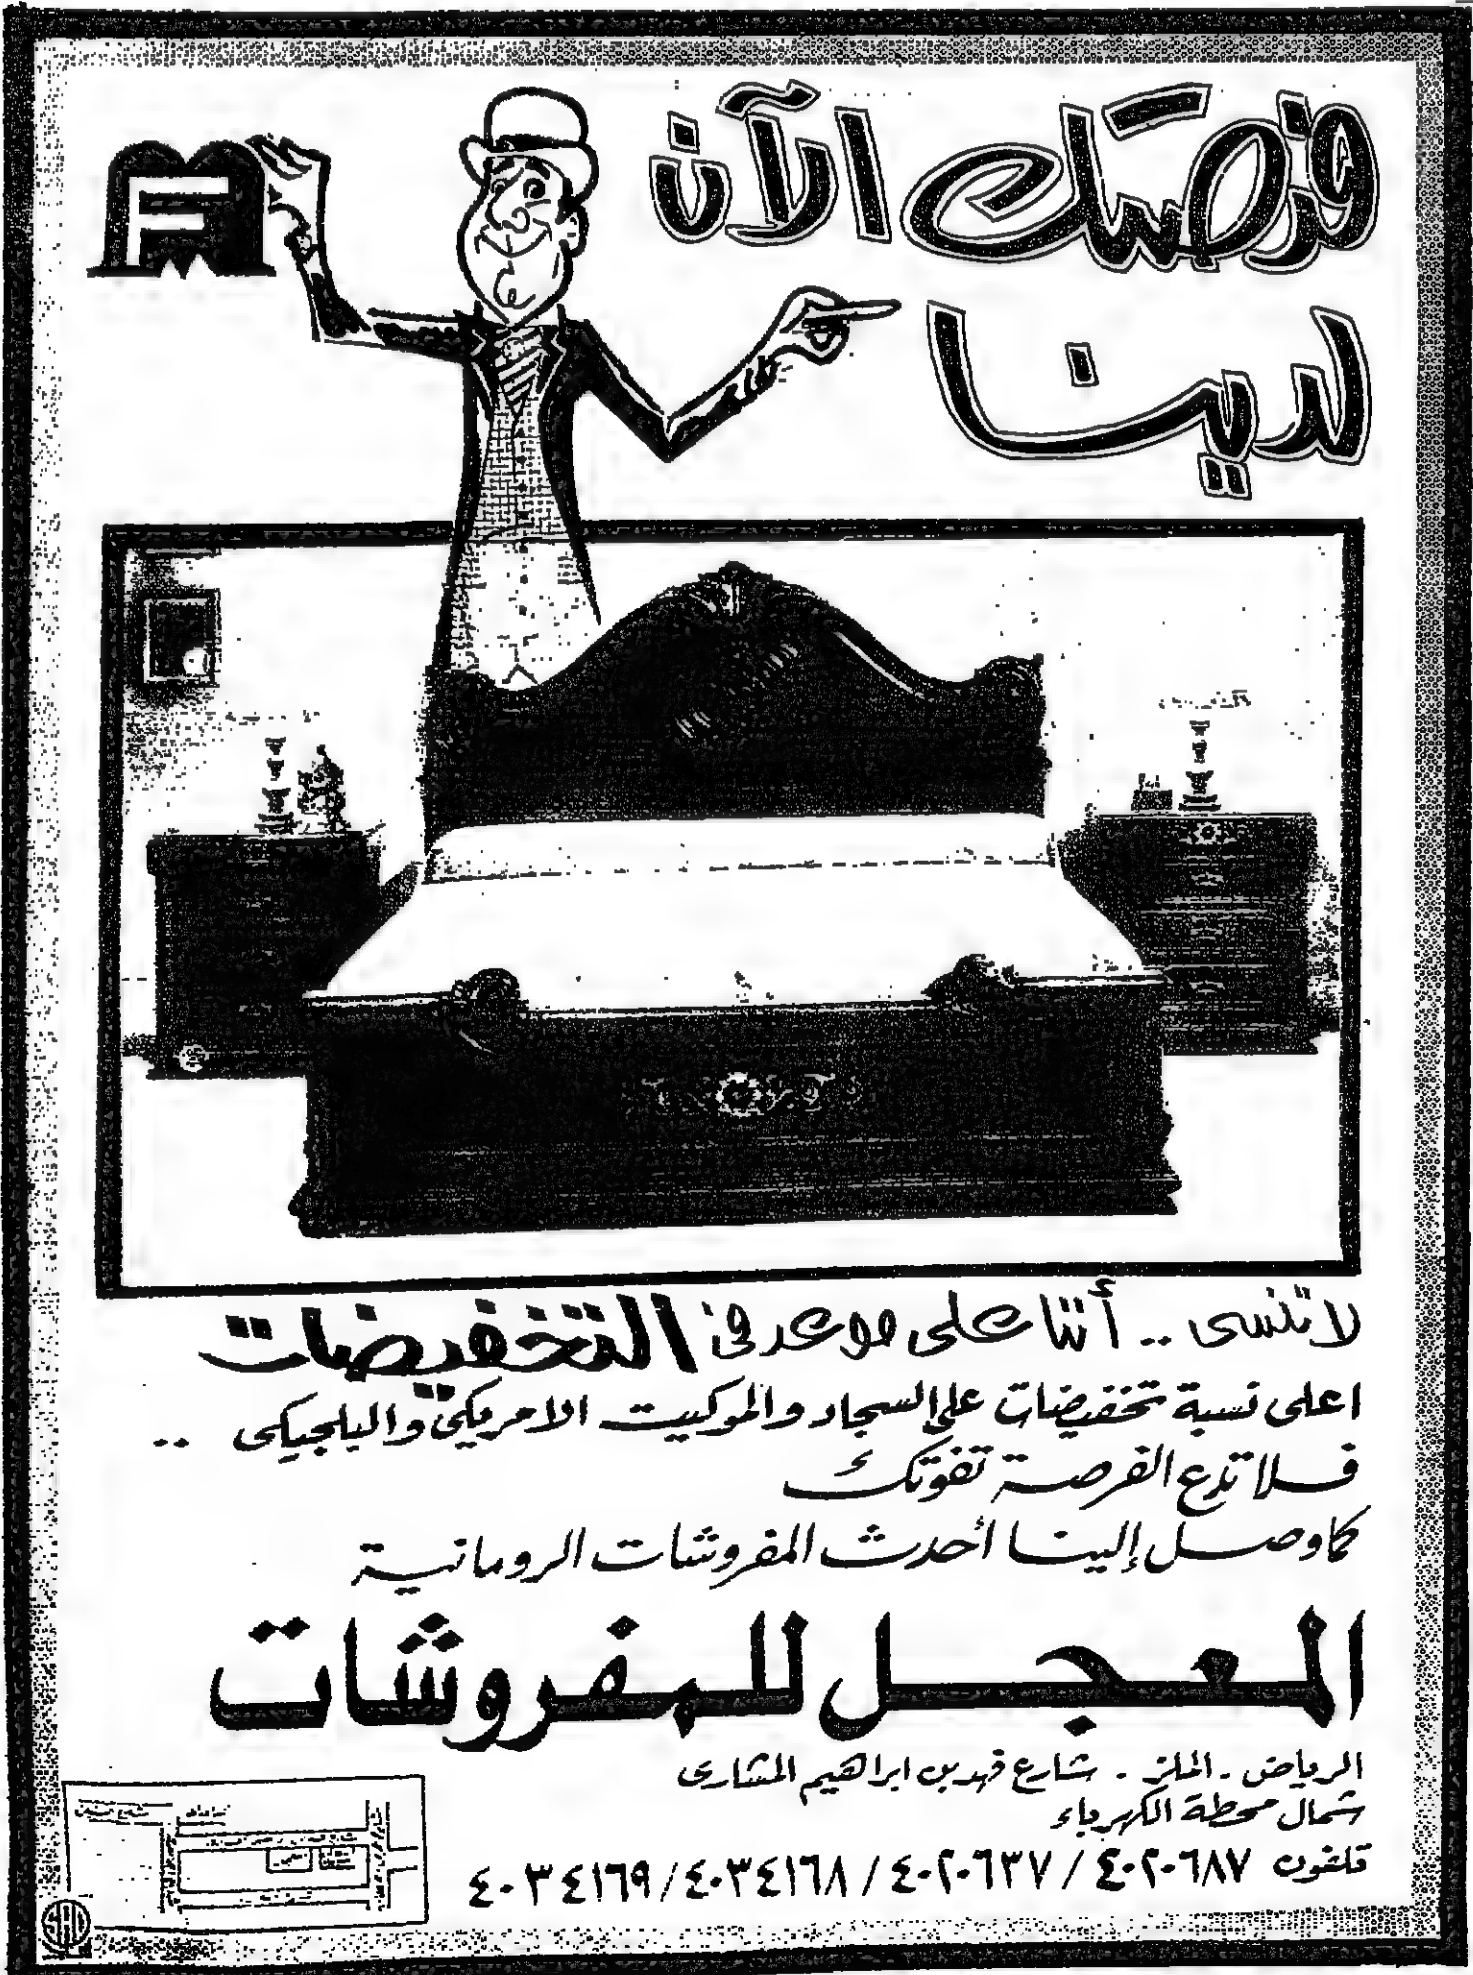 فرصتك الآن
لدينا
لا تنسى .. أننا على موعد في التخفيضات
اعلى نسبة تخفيضات على السجاد والموكيت الامريكي والبلجيكى ..
فلا تدع الفرصة تفوتك
كما وصل إلينا أحدث المفروشات الرومانية
المعجل للمفروشات
الرياض - الملز - شارع فهد بن ابراهيم المشارى
شمال محطة الكهرباء
تلفون ٤٠٢٠٦٨٧ / ٤٠٢٠٦٣٧ / ٤٠٣٤١٦٨ / ٤٠٣٤١٦٩